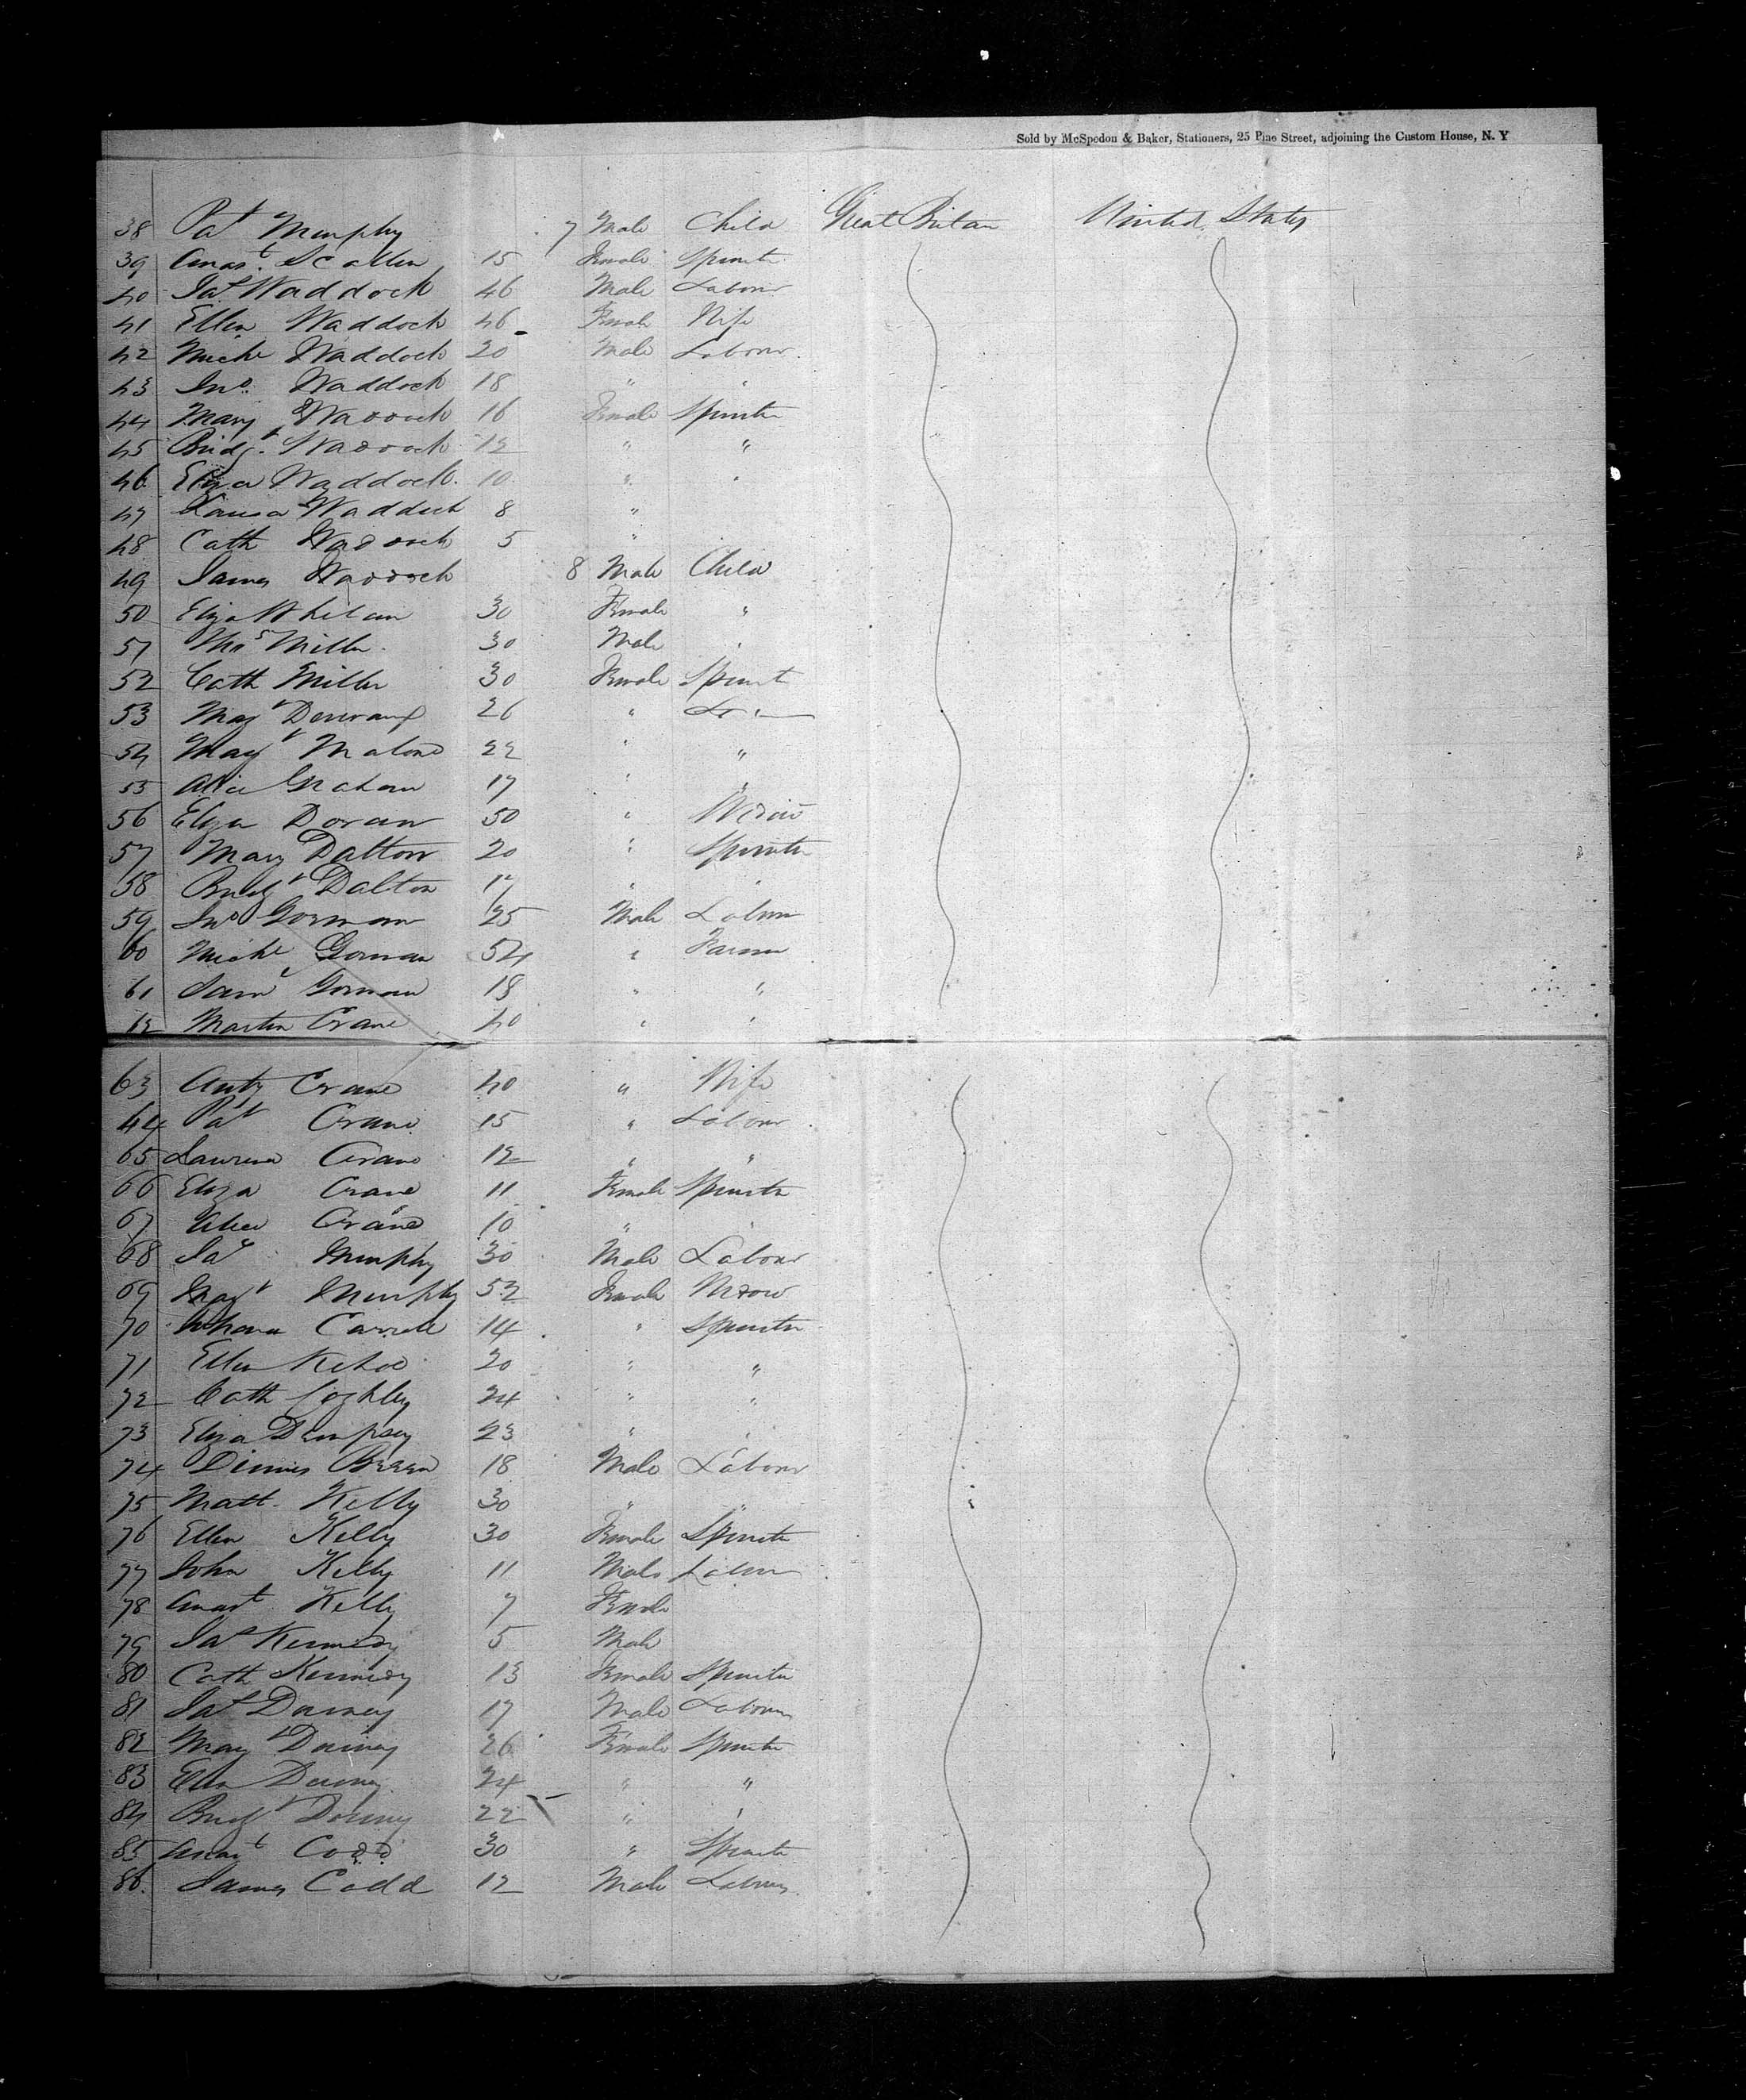 Sold by McSpedon & Baker, Stationers, 25 Pine Street, adjoining the Custom House, N. Y
38 Pat Murphy 7 Male Child Great Britan United States
39 Anast. Scallen 15 Female Spinster
40 Jas Waddock 46 Male Labour
41 Ellen Waddock 46 Female Wife
42 Michl Waddock 20 Male Labour
43 Jno. Waddock 18 " "
44 Mary Waddock 16 Female Spinster
45 Bridgt. Waddock 12 " "
46 Eliza Waddock. 10 " "
47 Waddock 8 "
48 Cath Waddock 5 "
49 James Waddock 8 Male Child
50 Eliza Whelan 30 Female "
51 Thos Miller 30 Male "
52 Cath Miller 30 Female Spinst
53 Magt 26 "
54 Magt Malone 22 " "
55 Alice Graham 17 " "
56 Eliza Doran 50 " Widow
57 Mary Dalton 20 " Spinster
58 Bridgt Dalton 17 " "
59 Jno Gorman 25 Male Labour
60 Michl Gorman 54 " Farmer
61 Saml Gorman 18 " "
62 Martin Crane 40 " "
63 Anty Crane 40 " Wife
64 Pat Crane 15 " Labour
65 Laurence Crane 12 " "
66 Eliza Crane 11 Female Spinster
67 Alice Crane 10 " "
68 Jas Murphy 30 Male Labour
69 Magt Murphy 52 Female Widow
70 Carroll 14 " Spinster
71 Ellen Kehoe 20 " "
72 Cath Coghley 24 " "
73 Eliza Dempsey 23 " "
74 Dinnis Breen 18 Male Labour
75 Matt. Kelly 30 " "
76 Ellen Kelly 30 Female Spinster
77 John Kelly 11 Male Labour
78 Anast Kelly 7 Female
79 Jas Kennedy 5 Male
80 Cath Kennedy 13 Female Spinster
81 Jas 17 Male Labour
82 Magt 26 Female Spinster
83 24 " "
84 Bridgt 22 " "
85 Anast Codd 30 " Spinster
86. James Codd 12 Male Labour